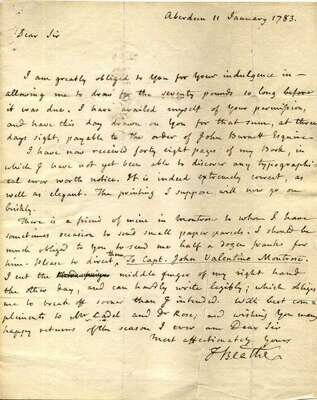 Aberdeen 11 January 1783.
Dear Sir
I am greatly obliged to you for your indulgence in
allowing me to draw for the seventy pounds so long before
it was due. I have availed myself of your permission,
and have this day drawn on you for that sum, at three
days sight, payable to the order of John Burnett Esquire.
I have now received forty eight pages of my Book, in
which I have not yet been able to discover any typographi-
cal error worth notice. It is indeed extremely correct, as
well as elegant. The printing I suppose will now go on
briskly.
There is a friend of mine in Montrose to whom I have
sometimes occasion to send small paper parcels. I should be
much obliged to you, to send me half a dozen franks for
him. Please to direct, To Capt. John Valentine Montrose.
I cut the middle finger of my right hand
the other day, and can hardly write legibly; which obliges
me to break off sooner than I intended. With best com-
pliments to Mr Cadel and Dr Rose; and wishing you many
happy returns of the season I ever am Dear Sir
Most affectionately yours
J Beattie